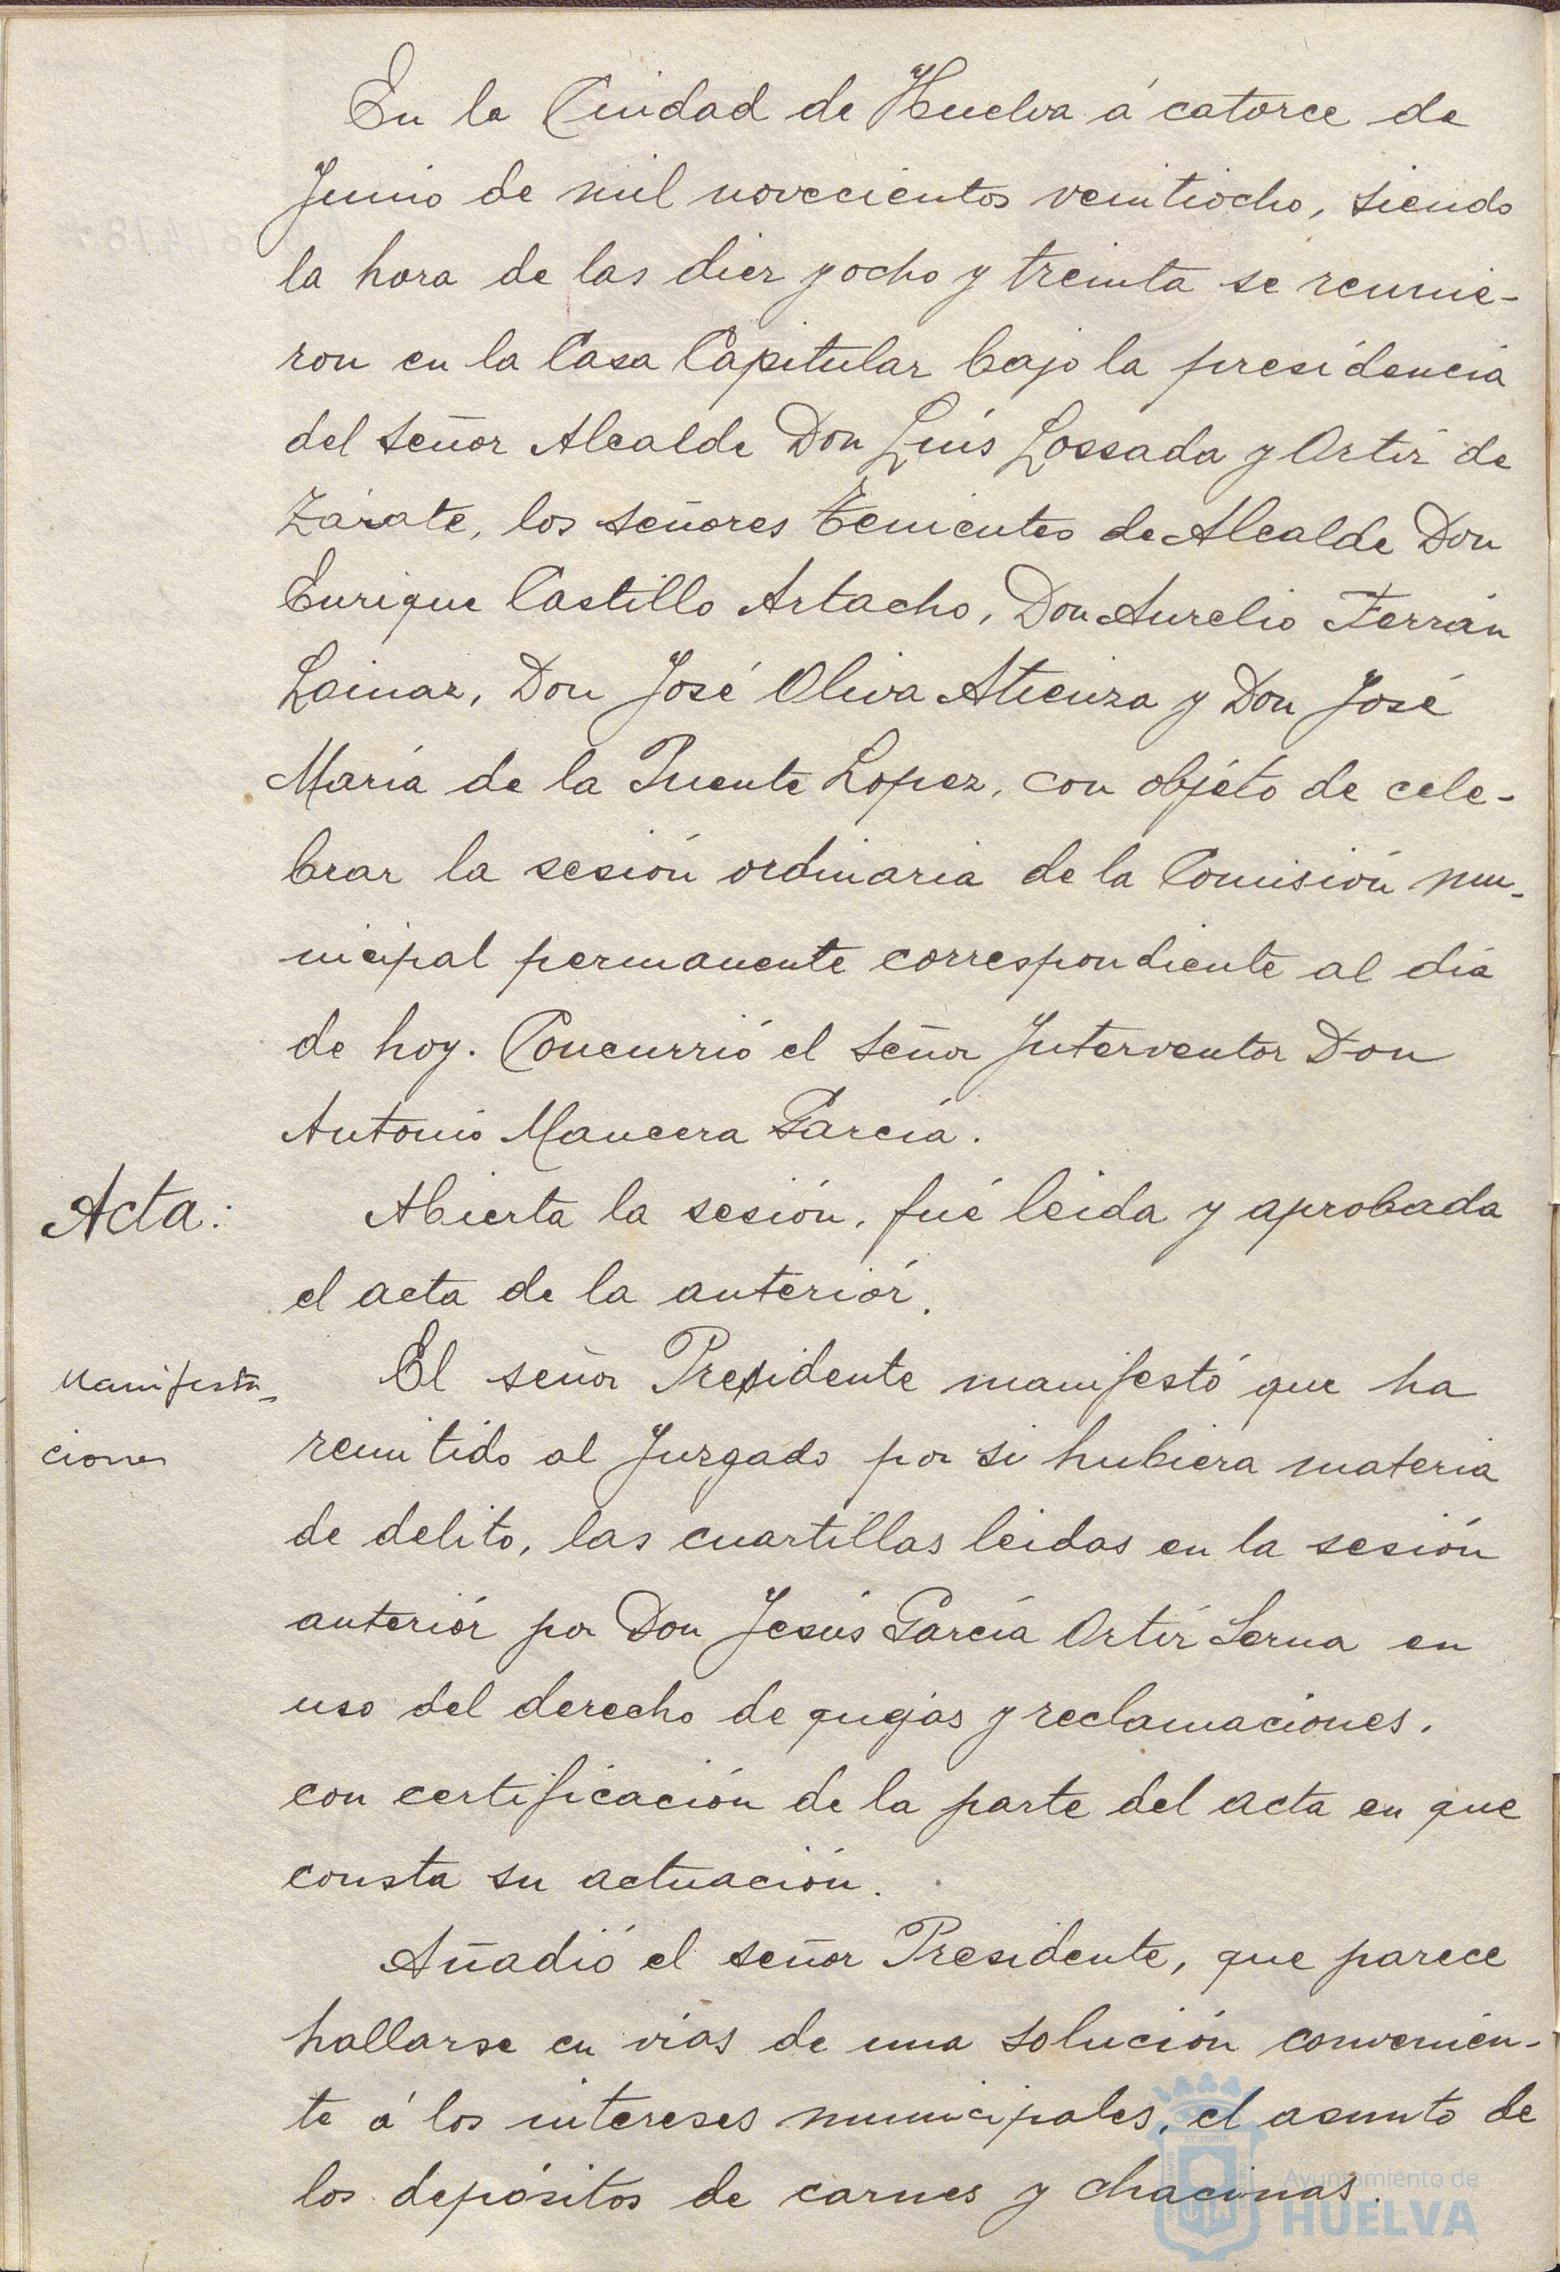 En la Ciudad de Huelva á catorce de
Junio de mil novecientos veintiocho, siendo
la hora de las diez y ocho y treinta se reunie-
ron en la Casa Capitular bajo la presidencia
del señor Alcalde Don Luís Lossada y Ortiz de
Zárate, los señores Tenientes de Alcalde Don
Enrique Castillo Artacho, Don Aurelio Ferrán
Lainar, Don José Oliva Atienza y Don José
María de la Puente Lopez, con objéto de cele-
brar la sesión ordinaria de la Comisión mu-
nicipal permanente correspondiente al día
de hoy. Concurrió el señor Interventor Don
Antonio Mancera García.
Acta: Abierta la sesión, fué leida y aprobada
el acta de la anteriór.
Manifesta- El señor Presidente manifestó que ha
ciones remitido al Juzgado por si hubiera materia
de delito, las cuartillas leidas en la sesión
anteriór por Don Jesús García Ortíz Serna en
uso del derecho de quejas y reclamaciones,
con certificación de la parte del acta en que
consta su actuación.
Añadió el señor Presidente, que parece
hallarse en vías de una solución convenien-
te á los intereses municipales, el asunto de
los depósitos de carnes y chacinas.
Ayuntamiento de
HUELVA